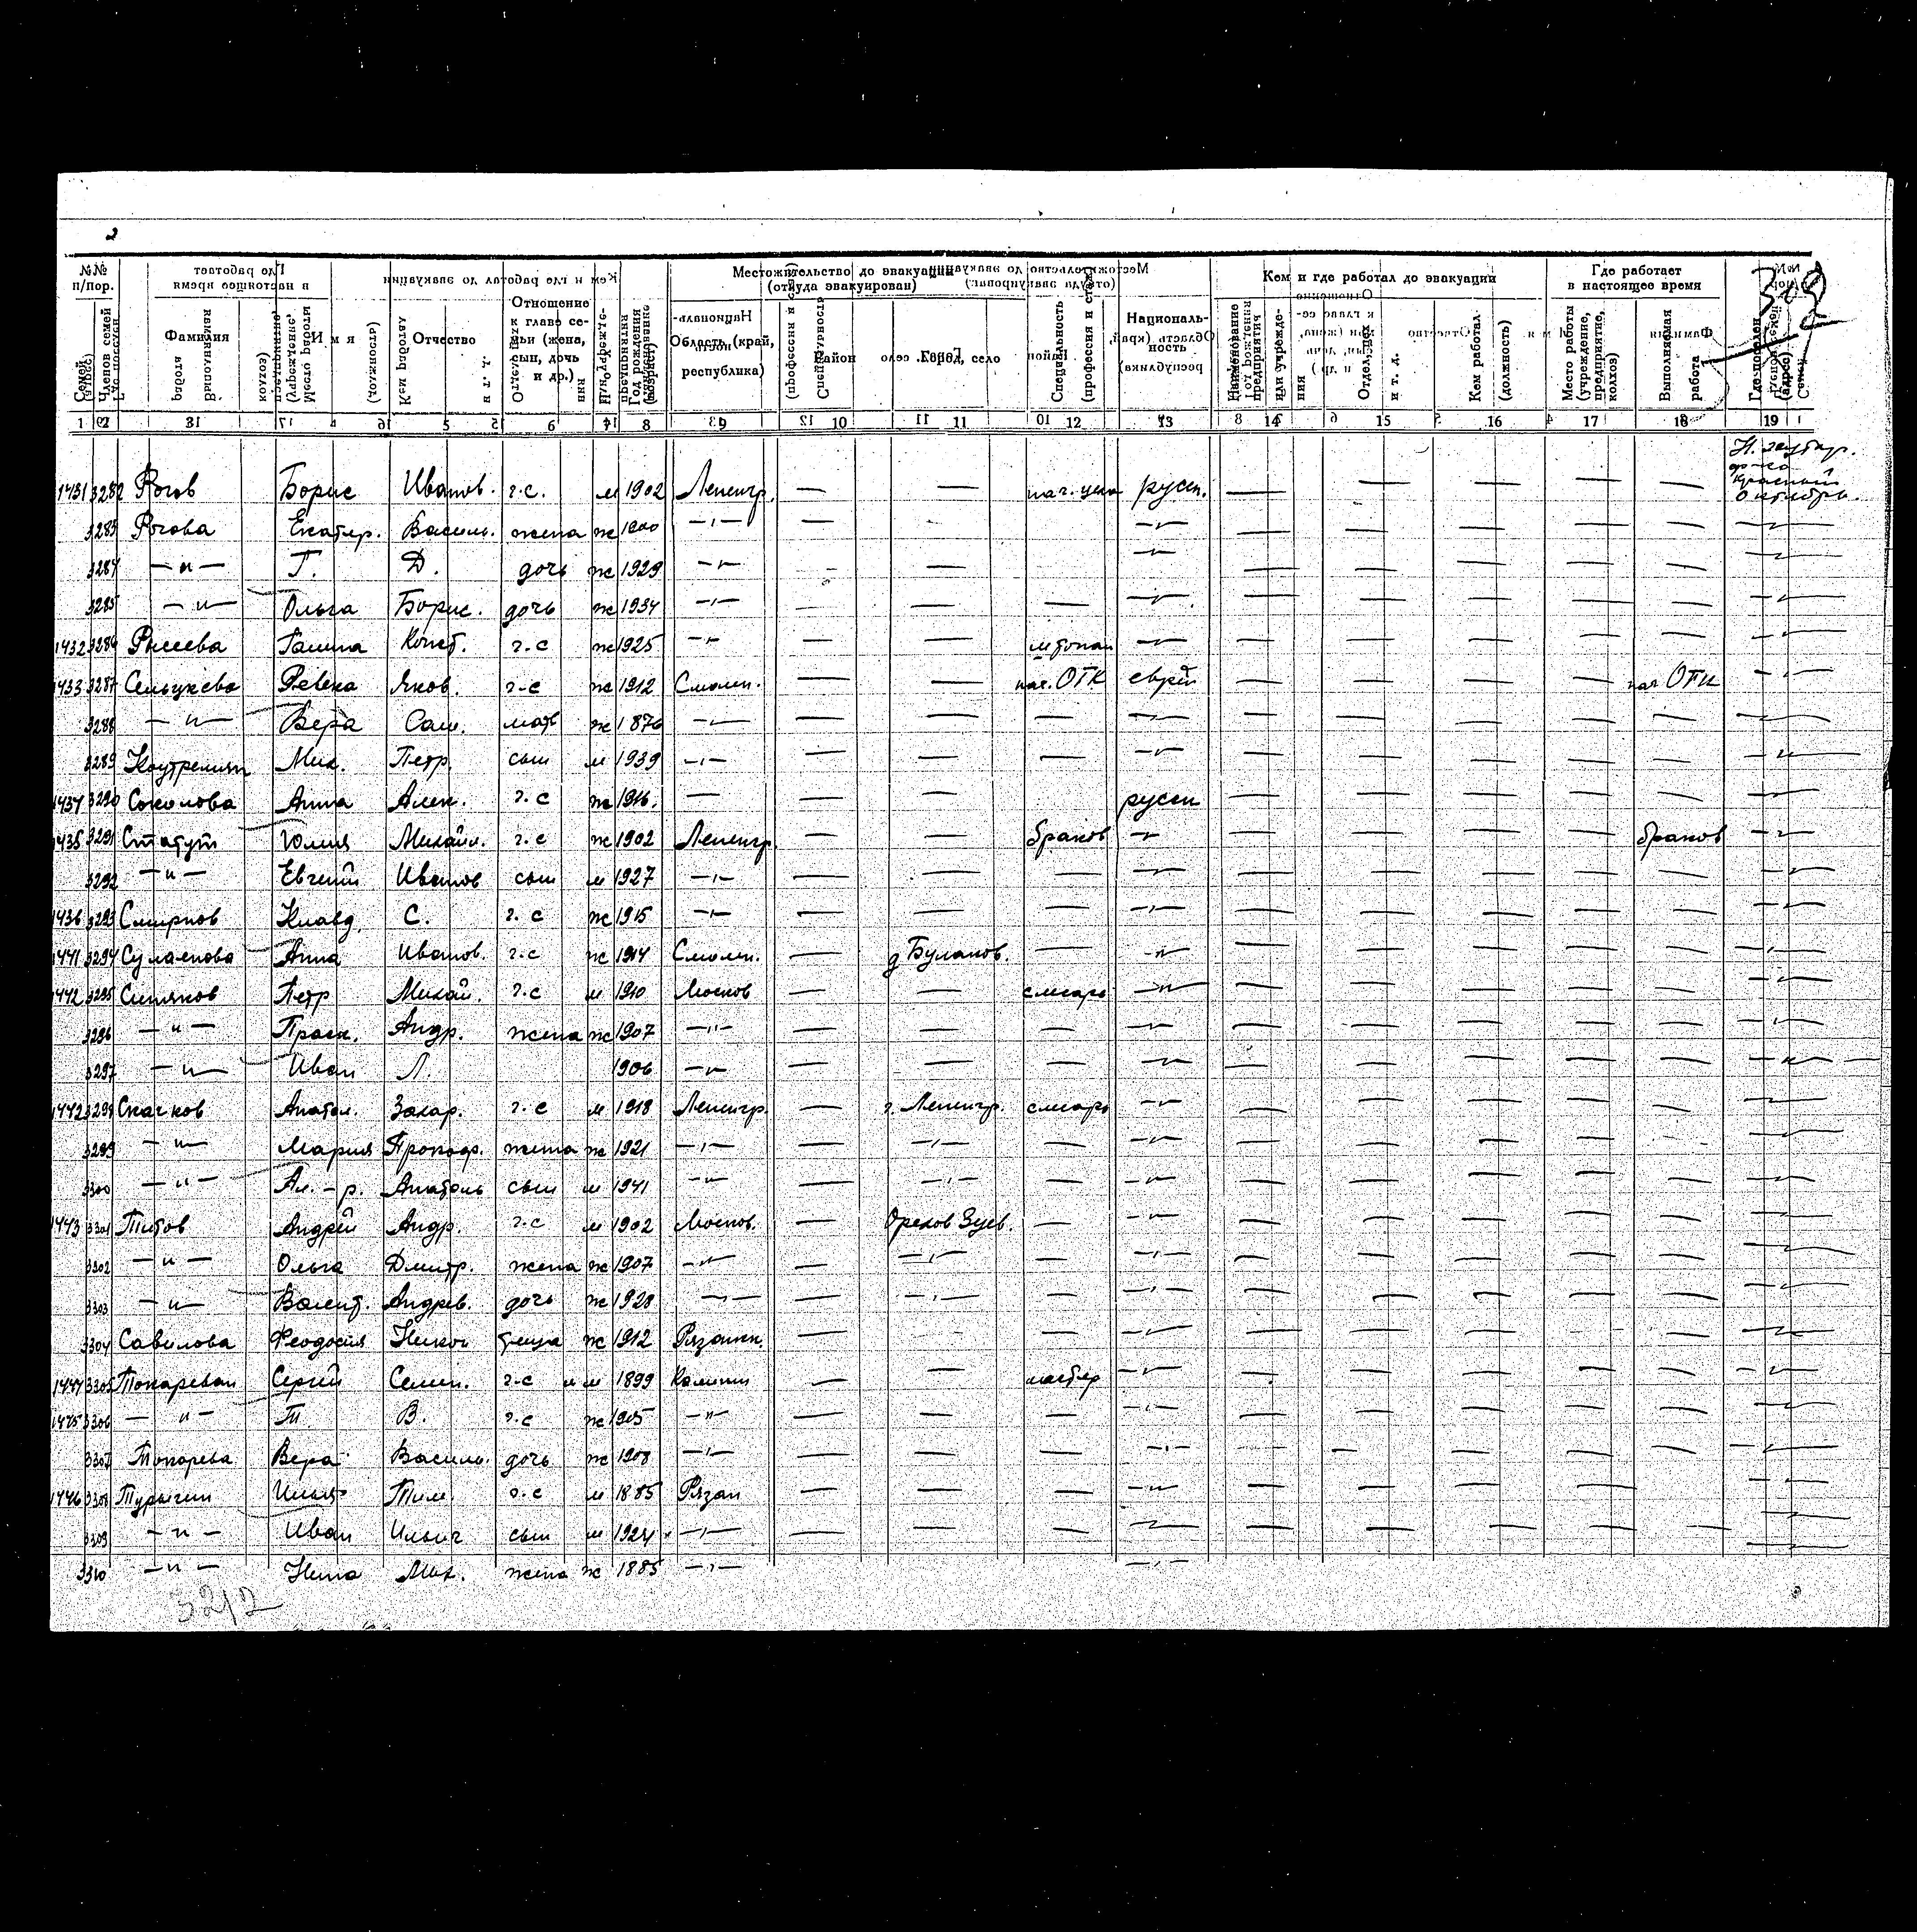 2
309
№№ п/пор.
Семей
Членов семей
Фамилия
Имя
Отчество
Отношение к главе семьи (жена, сын, дочь и др.)
Год рождения (возраст)
Местожительство до эвакуации (откуда эвакуирован)
Область (край, республика)
Район
Город, село
Специальность (профессия и стаж)
Националь-ность
Кем и где работал до эвакуации
Наименование предприятия или учрежде-ния
Отдел, цех и т. д.
Кем работал (должность)
Где работает в настоящее время
Место работы (учреждение, предприятие, колхоз)
Выполняемая работа
Где поселен (адрес)
1 2 3 4 5 6 8 9 10 11 12 13 14 15 16 17 18 19
ф-ка Красный Октябрь.
1431 3282 Рогов Борис Иванов. г.с. м 1902 Ленингр. — — нач. цеха русск. — — — — —
3283 Рогова Екатер. Василь. жена ж 1900 —"— — —"— — — — — — —"—
3284 —"— Г. Д. дочь ж 1929 —"— — — —"— — — — — — —"—
3285 —"— Ольга Борис. дочь ж 1934 —"— — — — —"— — — — — — —"—
1432 3286 Галина Конст. г.с ж 1925 —"— — — —"— — — — — — —"—
1433 3287 Ревека Яков. г-с ж 1912 Смолен. — — нач. ОТК еврей — — — — нач ОТК —"—
3288 —"— Вера Сам. мать ж 1876 —"— — — — —"— — — — — — —"—
3289 Мих. Петр. сын м 1939 —"— — — — —"— — — — — — —"—
1434 3290 Соколова Анна Алек. г.с ж 1916. — — — русск — — — — — —"—
1435 3291 Статут Юлия Михайл. г.с ж 1902 Ленингр. — — браков —"— — — — — браков —"—
3292 —"— Евгений Иванов сын м 1927 —"— — — — —"— — — — — — —"—
1436 3293 Смирнов Клавд. С. г. с ж 1915 —"— — — — —"— — — — — — —"—
1441 3294 Анна Иванов. г.с ж 1914 Смолен. — д Буланов. — —"— — — — — — —"—
1442 3295 Симяков Петр Михай. г.с м 1910 Москов — — слесарь —"— — — — — — —"—
3296 —"— Праск. Андр. жена ж 1907 —"— — — — —"— — — — — — —"—
3297 —"— Иван Л. 1906 —"— — — — —"— — — — — — —"—
1442 3298 Скачков Анатол. Захар. г.с м 1918 Ленингр. — г. Ленингр. слесарь —"— — — — — — —"—
3299 —"— Мария Прокофр. жена ж 1921 —"— — —"— — —"— — — — — — —"—
3300 —"— Ал.-р. Анатоль сын м 1941 —"— — —"— — —"— — — — — — —"—
1443 3301 Титов Андрей Андр. г.с м 1902 Москов. — Орехов Зуев. — —"— — — — — — —"—
3302 —"— Ольга Дмитр. жена ж 1907 —"— — —"— — —"— — — — — — —"—
3303 —"— Валент. Андрев. дочь ж 1928 —"— — —"— — —"— — — — — — —"—
3304 Савилова Феодосия ж 1912 Рязанск. — — — —"— — — — — — —"—
1444 3305 Сергей Семен. г-с м 1899 Калинин — — мастер —"— — — — — — —"—
1445 3306 —"— Т. В. г.с ж 1905 —"— — — — —"— — — — — — —"—
3307 Токарева Вера Василь. дочь ж 1908 —"— — — — —"— — — — — — —"—
1446 3308 Турыгин Илья Тим. г.с м 1885 Рязан — — — —"— — — — — — —"—
3309 —"— Иван Ильич сын м 1924 —"— — — — —"— — — — — — —"—
3310 —"— Нина Мих. жена ж 1885 —"— —"—
5212